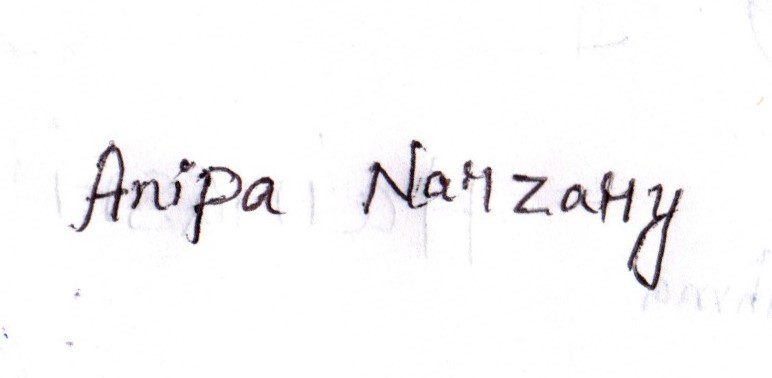 Anipa Narzary